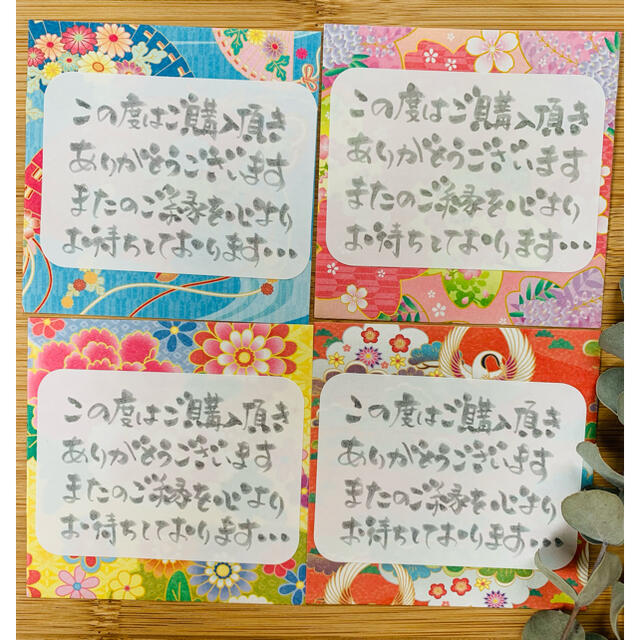 この度はご購入頂き
ありがとうございます
またのご縁を心より
お待ちしております…
この度はご購入頂き
ありがとうございます
またのご縁を心より
お待ちしております…
この度はご購入頂き
ありがとうございます
またのご縁を心より
お待ちしております…
この度はご購入頂き
ありがとうございます
またのご縁を心より
お待ちしております…